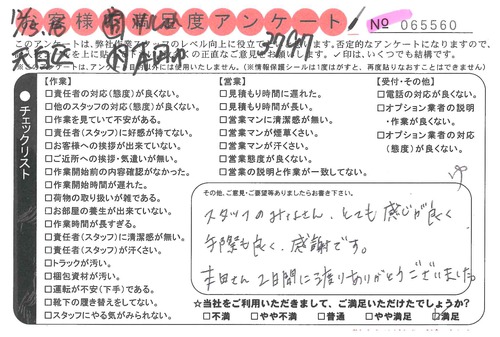 お客様満足度アンケート
No 065560
このアンケートは、弊社作業スタッフのレベル向上に役立て
否定的なアンケートになりますので、
の正直なご意見をお聞きします。✓印は、いくつでも結構です。
使用いたしません。(※情報保護シールは1度はがすと、再度貼りなおすことはできません)
チェックリスト
【作業】
□責任者の対応(態度)が良くない。
□他のスタッフの対応(態度)が良くない。
□作業を見ていて不安がある。
□責任者(スタッフ)に好感が持てない。
□お客様への挨拶が出来ていない。
□ご近所への挨拶・気遣いが無い。
□作業開始前の内容確認がなかった。
□作業開始時間が遅れた。
□荷物の取り扱いが雑である。
□お部屋の養生が出来ていない。
□作業時間が長すぎる。
□責任者(スタッフ)に清潔感が無い。
□責任者(スタッフ)が汗くさい。
□トラックが汚い。
□梱包資材が汚い。
□運転が不安(下手)である。
□靴下の履き替えをしてない。
□スタッフにやる気がみられない。
【営業】
□見積もり時間に遅れた。
□見積もり時間が長い。
□営業マンに清潔感が無い。
□営業マンが煙草くさい。
□営業マンが汗くさい。
□営業態度が良くない。
□営業の説明と作業が一致してない。
【受付・その他】
□電話の対応が良くない。
□オプション業者の説明・作業が良くない。
□オプション業者の対応(態度)が良くない。
その他、ご意見・ご要望等ありましたらお書き下さい。
スタッフのみなさん、とても感じが良く
手際も良く、感謝です。
本田さん2日間に渡りありがとうございました。
☆当社をご利用いただきまして、ご満足いただけたでしょうか?
□不満 □やや不満 □普通 □やや満足 □満足